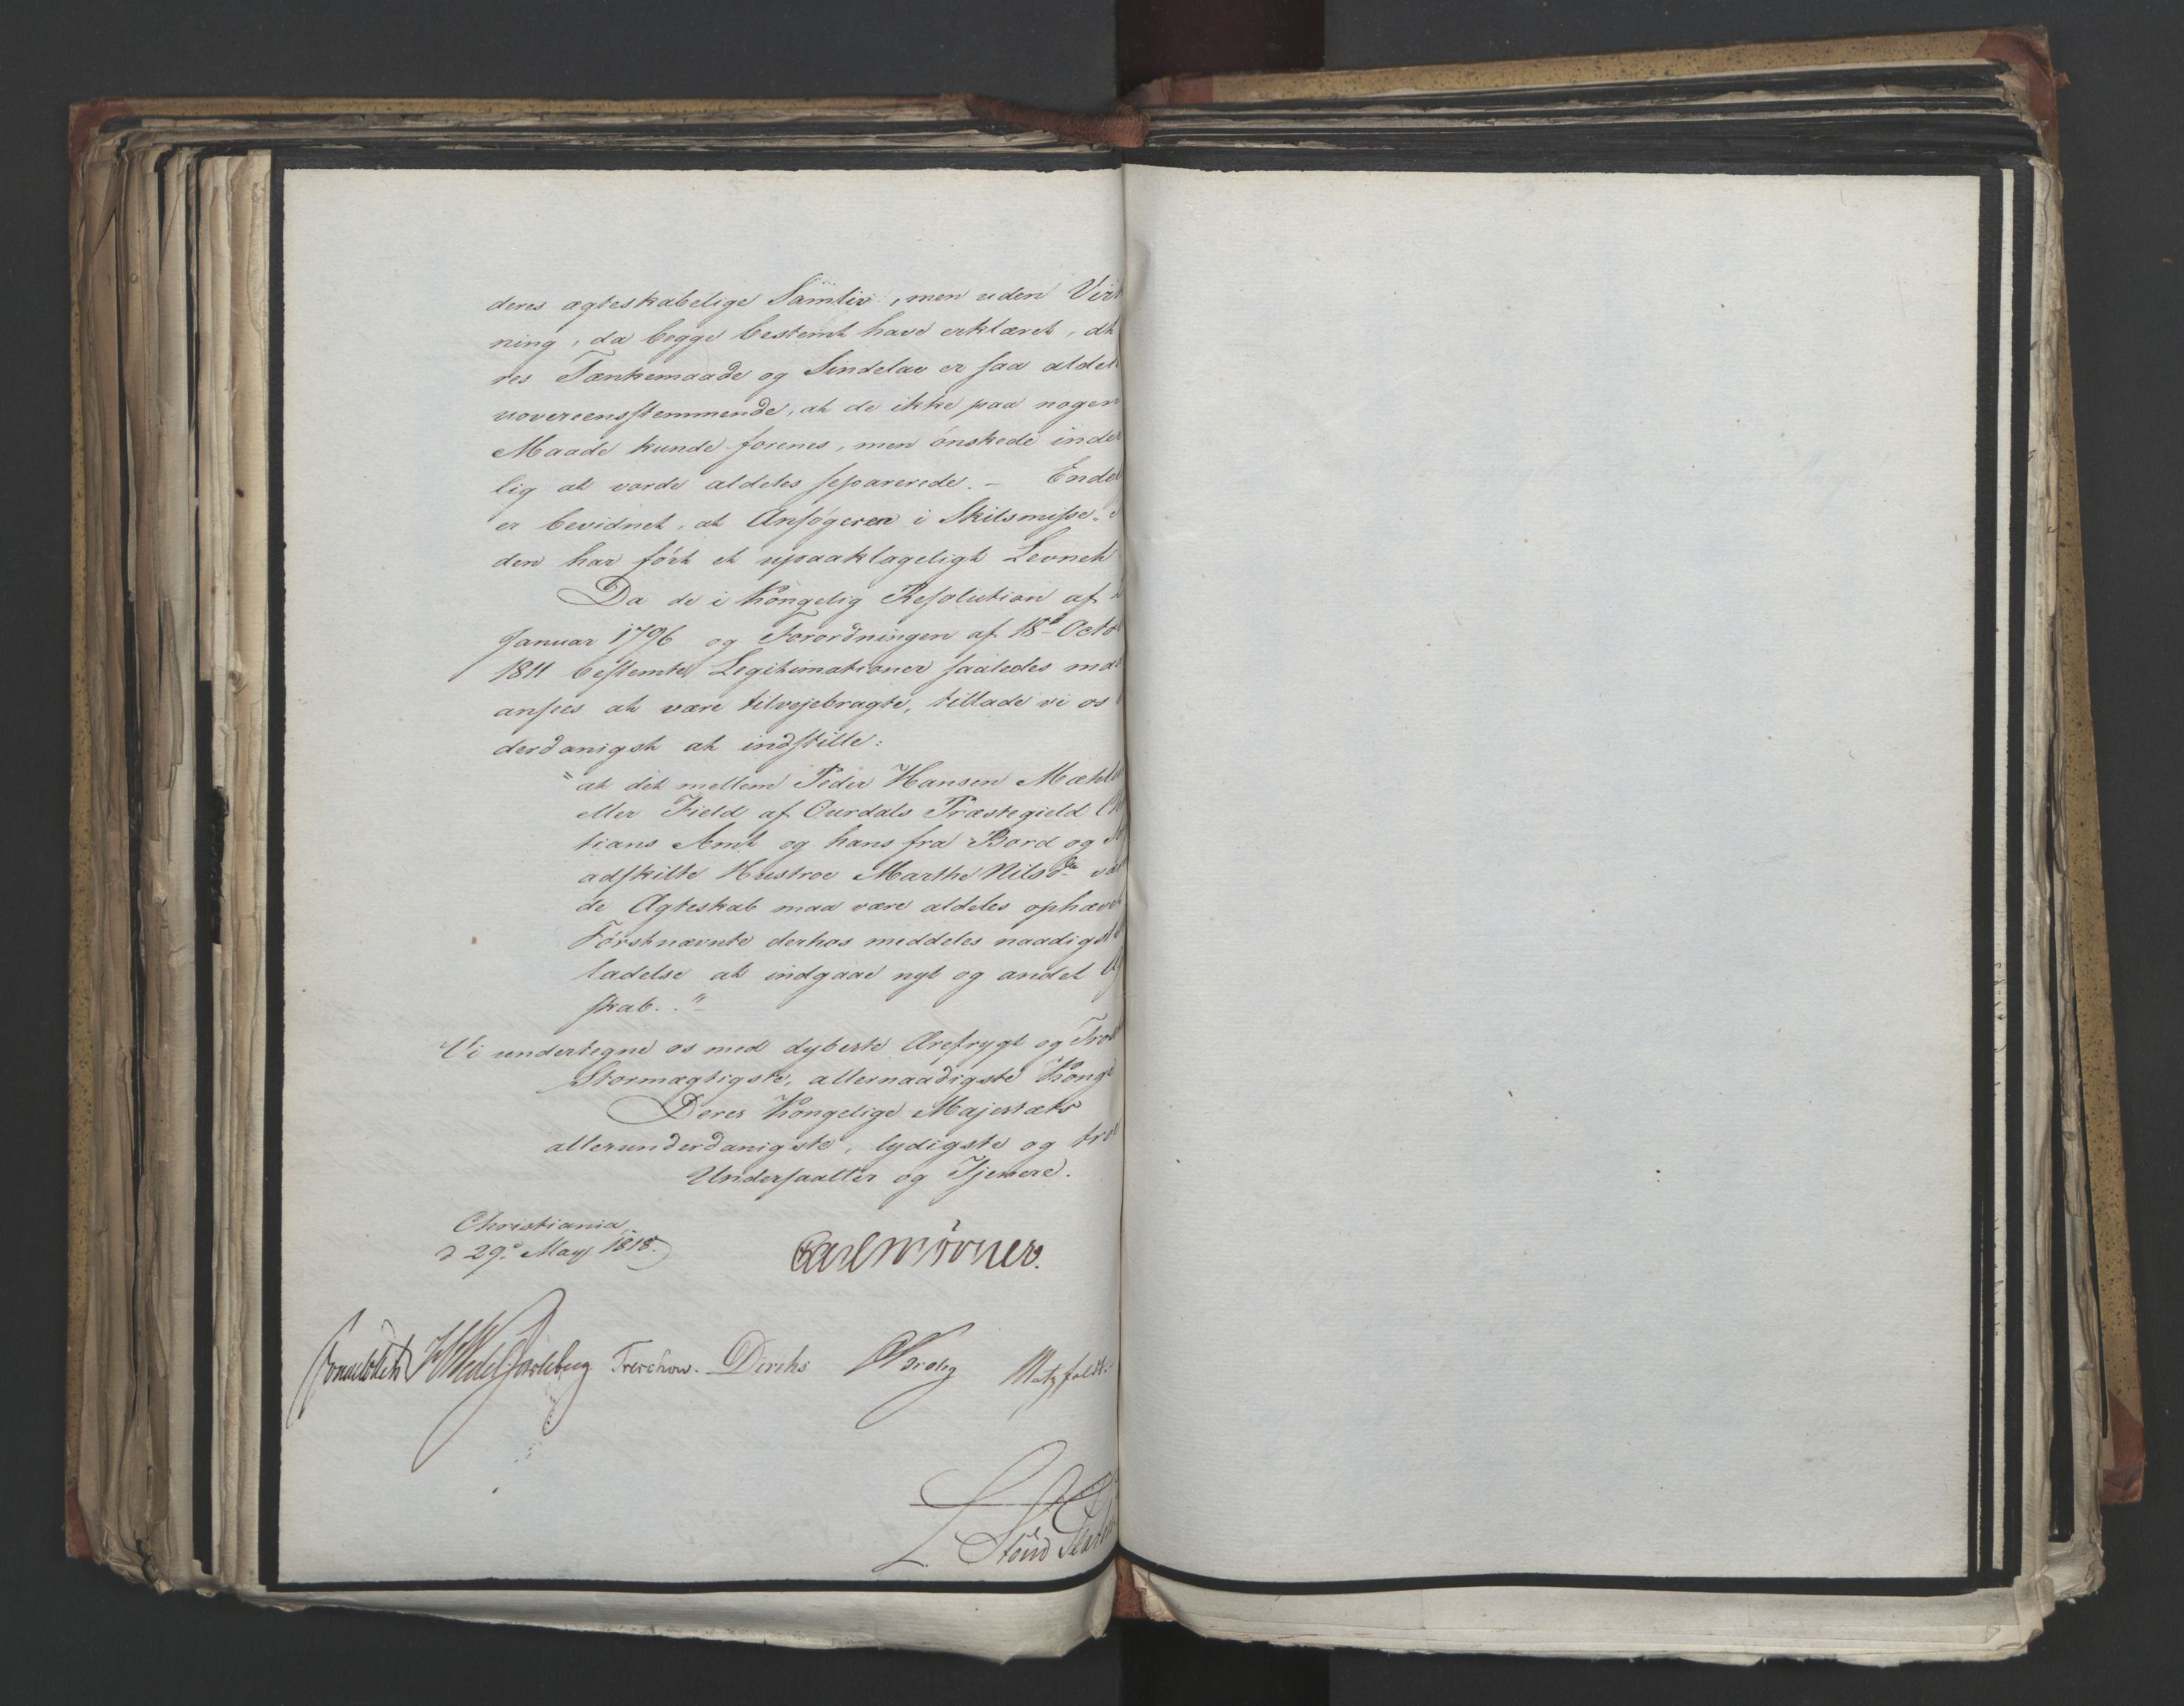 deres ægteskabelige Samliv, men uden Virk
ning, da begge bestemt have erklæret, at
res Tænkemaade og Sindelav er saa aldel
uovereensstemmende, at de ikke paa nogen
Maade kunde forenes, men ønskede inder
lig at vorde aldeles separerede. – Endel
er bevidnet, at Ansøgeren i Skilsmisse-
den har ført et upaaklageligt Levnet
Da de i Kongelig Resolution af
Januar 1796 og Forordningen af 18d Octo
1811 bestemte Legitimationer saaledes maa
ansees at være tilvejebragte, tillade vi os
derdanigst at indstille:
"at det mellem Peder Hansen Mæhl
eller Field af Ourdals Præstegield Ch
tians Amt og hans fra Bord og
adskilte Hustroe Marthe Nilsdr vær
de Ægteskab maa være aldeles ophævet
Førstnævnte derhos meddeles naadigst
ladelse at indgaae nyt og andet Æg
skab."
Vi undertegne os med dybeste Ærefrygt og Tro
Stormægtigste, allernaadigste Konge
Deres Kongelige Majestæts
allerunderdanigste, lydigste og troe
Undersaatter og Tjenere.
Christiania
d 29d May 1818.
Carl Mörner.
Sommerhielm HWedel Jarlsberg Treschow. Diriks Motzfeldt.